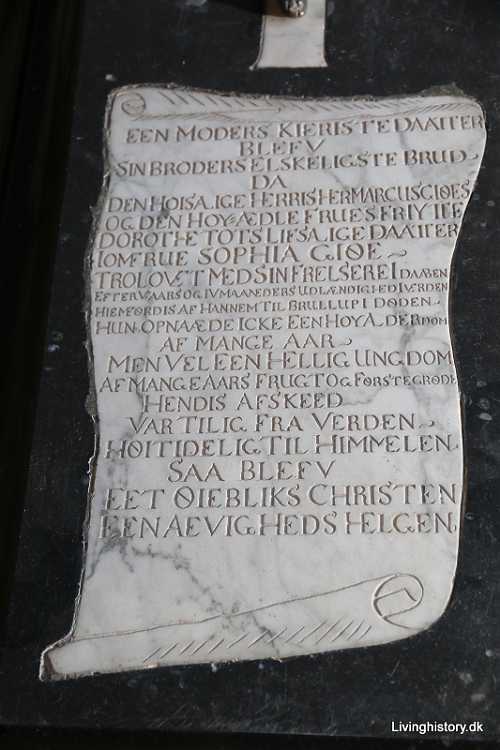 EEN MODERS KIERISTE DAATTER
BLEFV
SIN BRODERS ELSKELIGSTE BRUD
DA
DEN HOISALIGE HERRIS HER MARCUS GIØES
OG DEN HOYÆDLE FRUES FR IYTTE
DOROTHE TOTS LIFSALIGE DAATTER
IOMFRUE SOPHIA GIØE
TROLOVET MED SIN FRELSER EI DAABEN
EFTER VAARS OG IV MAANEDERS UDLÆNDIGHED I VERDEN
HIEMFØRDIS AF HANNEM TIL BRULLUP I DØDEN
HUN OPNAAEDE ICKE EEN HOY ALDERDOM
AF MANGE AAR
MEN VEL EEN HELLIG UNGDOM
AF MANGE AARS FRUGT OG FØRSTEGRØDE
HENDIS AFSKEED
VAR TILIG FRA VERDEN
HØITIDELIG TIL HIMMELEN
SAA BLEFV
EET ØIEBLIKS CHRISTEN
EEN AEVIGHEDS HELGEN
Livinghistory.dk